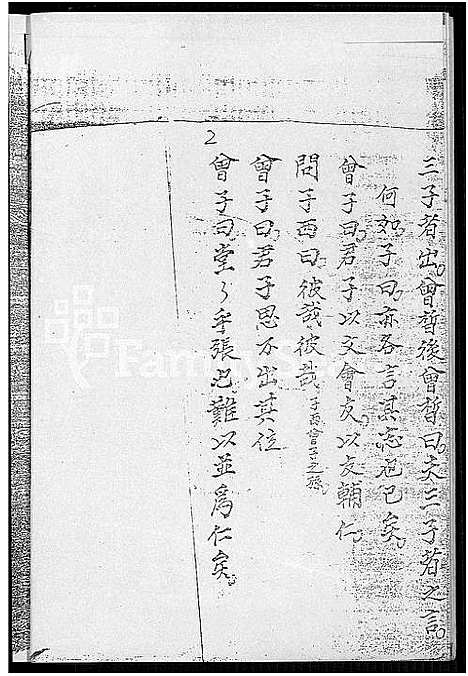 三子者出。曾晳後曾晳曰。夫三子者之言。
何如子曰。亦各言其志也已矣。
曾子曰。君子以文會友。以友輔仁。
問子西曰。彼哉彼哉 子西曾子之孫。
曾子曰。君子思不出其位
2
曾子曰。堂々乎張也。難以並為仁矣。
FamilySearch